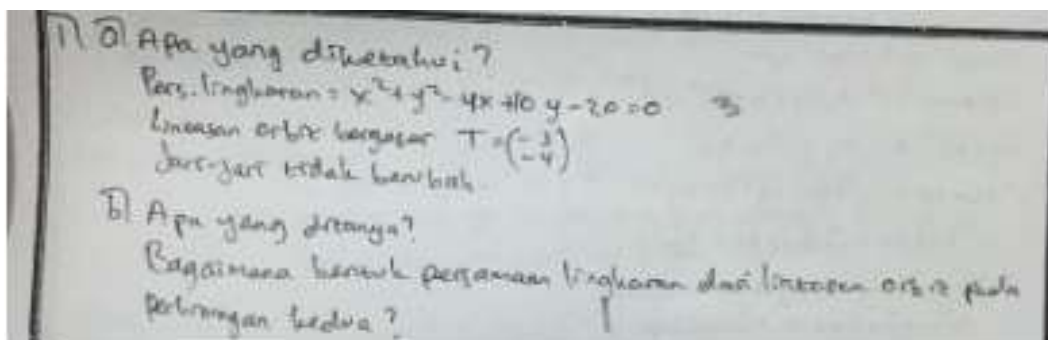 1) a) Apa yang diketahui?
Pers. lingkaran = x² + y² - 4x + 10y - 20 = 0 3
Lintasan orbit bergeser T = (-3 -4)
Jari-jari tidak berubah.
b) Apa yang ditanya?
Bagaimana bentuk persamaan lingkaran dari lintasan orbit pada
perhitungan kedua?